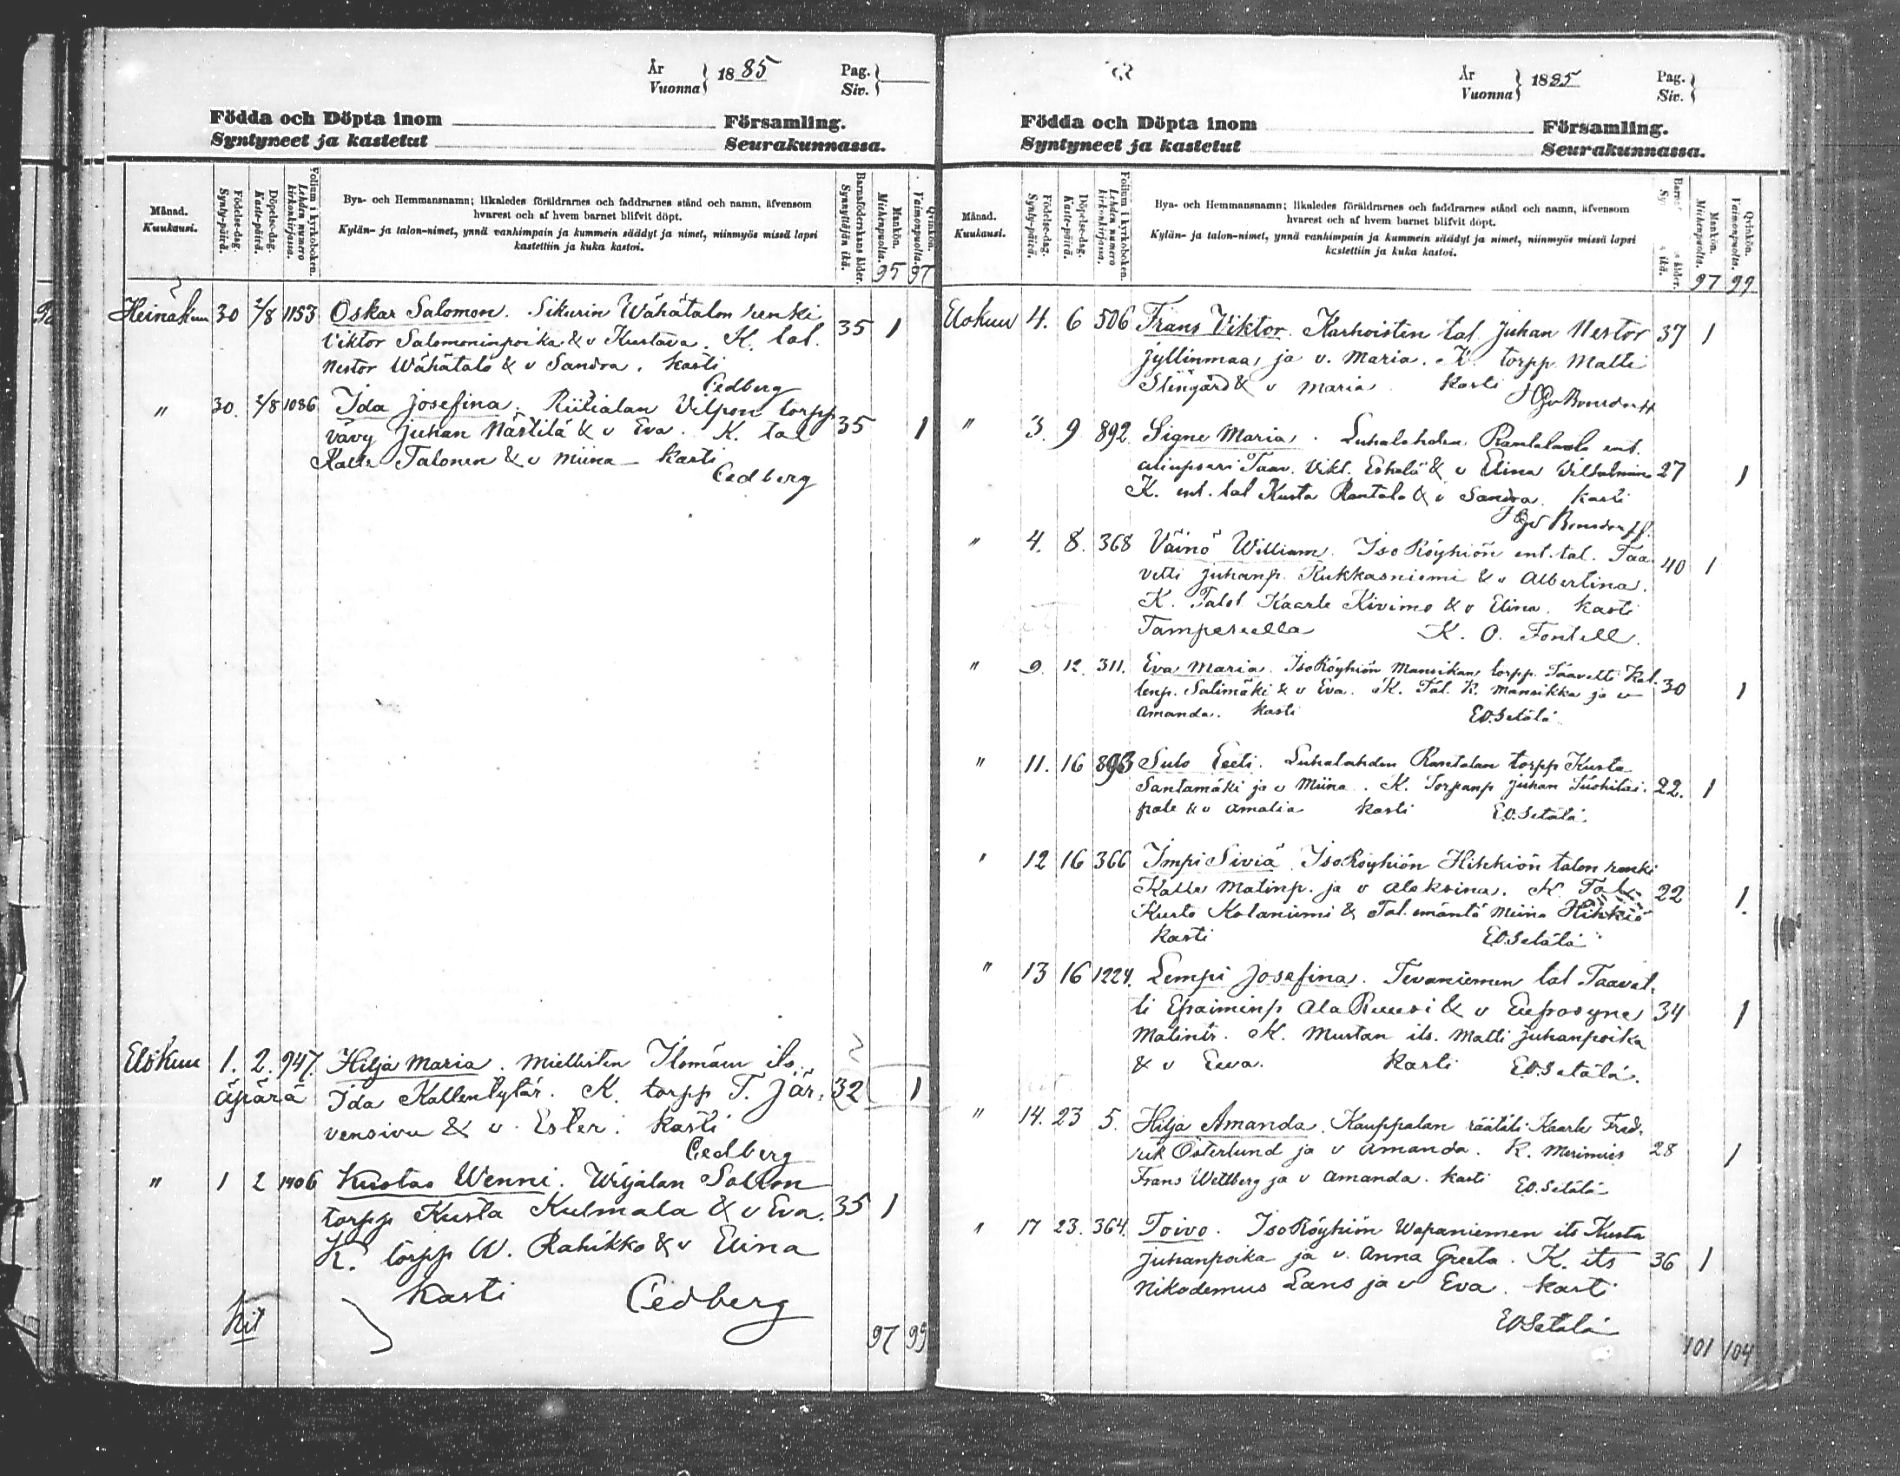 År Vuonna } 1885 Pag. Siv. }
Födda och Döpta inom Församling.
Syntyneet ja kastetut Seurakunnassa.
Månad. Kuukausi.
Födelse-dag. Synty-päivä.
Döpelse-dag. Kaste-päivä.
Folium i kyrkoboken. Lehden numero kirkonkirjassa.
Bya- och Hemmansnamn; likaledes föräldrarnes och faddrarnes stånd och namn, äfvensom
hvarest och af hvem barnet blifvit döpt.
Kylän- ja talon-nimet, ynnä vanhimpain ja kummein säädyt ja nimet, niinmyös missä lapsi
kastettiin ja kuka kastoi.
Barnaföderskans ålder. Synnyttäjän ikä.
Mankön. Miehenpuolta. 95
Qvinkön. Vaimonpuolta. 97
Heinäkuu 30 2/8 1153 Oskar Salomon. Sikurin Wähätalon renki 35 1
Viktor Salomoninpoika & v Kustava. K. tal.
Nestor Wähätalo & v Sandra. kasti
Cedberg
" 30. 2/8 1086 Ida Josefina. Riitialan Vilpon torpp 35 1
vävy Juhan Mästilä & v Eva. K. tal
Kalle Talonen & v Miina kasti
Cedberg
Elokuu 1. 2. 947. Hilja Maria. Miellisten Ilomäen its.
äpärä Ida Kallentytär. K. torpp T. Jär- 32 1
vensivu & v Ester. kasti
Cedberg
" 1 2 1406 Kustaa Wenni. Wiijalan
torpp Kusta Kulmala & v Eva. 35 1
K. torpp W. Rahikko & v Elina
kasti Cedberg
97 99
År Vuonna } 1885 Pag. Siv. }
Födda och Döpta inom Församling.
Syntyneet ja kastetut Seurakunnassa.
Månad. Kuukausi.
Födelse-dag. Synty-päivä.
Döpelse-dag. Kaste-päivä.
Folium i kyrkoboken. Lehden numero kirkonkirjassa.
Bya- och Hemmansnamn; likaledes föräldrarnes och faddrarnes stånd och namn, äfvensom
hvarest och af hvem barnet blifvit döpt.
Kylän- ja talon-nimet, ynnä vanhimpain ja kummein säädyt ja nimet, niinmyös missä lapsi
kastettiin ja kuka kastoi.
Mankön. Miehenpuolta. 97
Qvinkön. Vaimonpuolta. 99
Elokuu 4. 6 506 Frans Viktor. Karhoisten tal. Juhan Nestor 37 1
Jyllinmaa, ja v. Maria. K. torpp Matti
Stengård & v Maria. kasti
" 3. 9 892. Signe Maria. Luhalahden Rantalan ent.
Taav. Vikt. Eskola & v Elina Vilhelmina 27 1
K. ent. tal Kusta Rantala & v Sandra. kasti
" 4. 8. 368 Väinö William. Iso Röyhiön ent. tal. Taa- 40 1
vetti Juhanp. Kukkasniemi & v Albertina.
K. Talol Kaarle Kivimo & v Elina. kasti
Tampereella K. O. Fontell.
" 9. 12. 311. Eva Maria. IsoRöyhiön Mansikan torpp. Taavetti Kal-
lenp. Salimäki & v Eva. K. Tal. K. Mansikka ja v 30 1
Amanda. kasti E.O. Setälä
" 11. 16 893 Sulo Eeti. Luhalahden Rantalan torpp Kusta
Santamäki ja v Miina. K. Torpanp Juhan Tuohitai- 22. 1
pale & v Amalia kasti E.O. Setälä.
" 12 16 366 Impi Siviä. IsoRöyhiön Hihkiön talon renki
Kalle Matinp. ja v Aleksina. K Tal. 22 1.
Kusto Kolaniemi & Tal. emäntä Miina Hihkiö
kasti E.O. Setälä
" 13 16 1224. Lempi Josefina. Tevaniemen tal Taavet-
ti Efraiminp Ala Ruusi & v Eufrosyne 34 1
Matintr. K. Mustan its. Matti Juhanpoika
& v Eeva. kasti E.O. Setälä.
" 14. 23 5. Hilja Amanda. Kauppalan räätäli Kaarle Fred-
rik Österlund ja v Amanda. K. Merimies 28 1
Frans Wettberg ja v Amanda. kasti E.O. Setälä
" 17 23. 364. Toivo. IsoRöyhiön Wapaniemen its Kusta
Juhanpoika ja v. Anna Greeta. K. its 36 1
Nikodemus Lans ja v Eva. kasti
E.O. Setälä
101 104